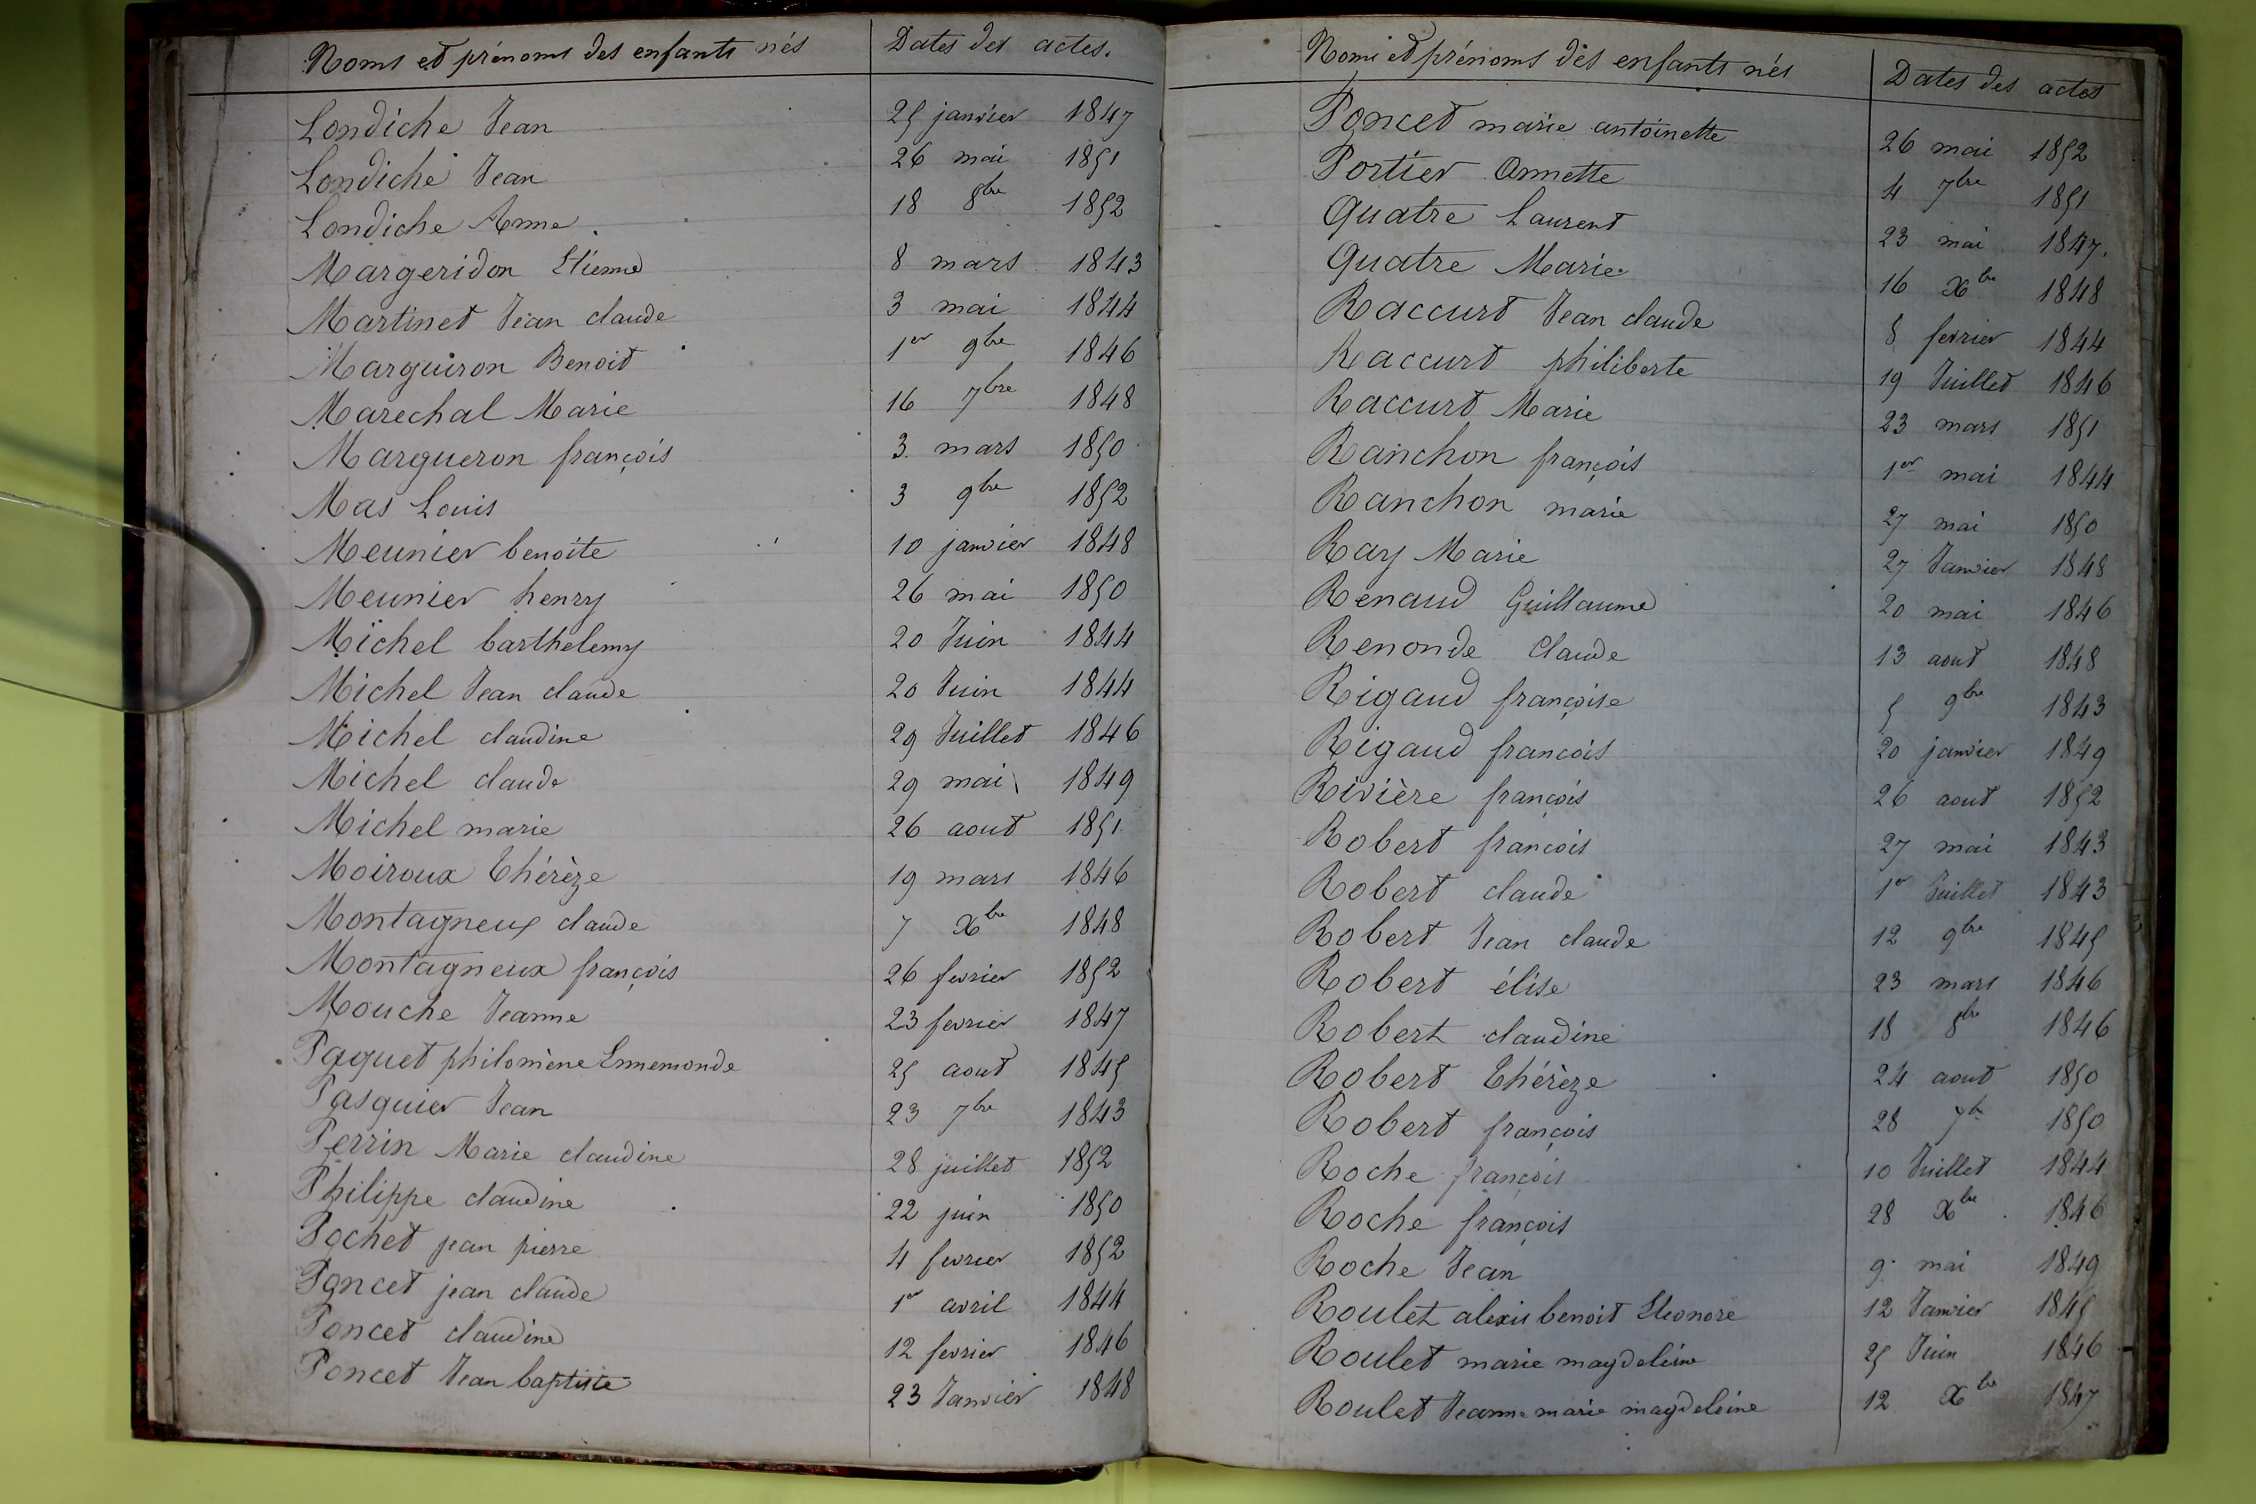 Noms et prénoms des enfants nés Dates des actes.
Londiche Jean 25 janvier 1847
Londiche Jean 26 mai 1851
Londiche Anne 18 8bre 1852
Margeridon Etienne 8 mars 1843
Martinet Jean claude 3 mai 1844
Marguiron Benoit 1er 9bre 1846
Marechal Marie 16 7bre 1848
Margueron françois 3 mars 1850
Mas Louis 3 9bre 1852
Meunier benoite 10 janvier 1848
Meunier henry 26 mai 1850
Michel barthelemy 20 Juin 1844
Michel Jean claude 20 Juin 1844
Michel claudine 29 Juillet 1846
Michel claude 29 mai 1849
Michel marie 26 aout 1851
Moiroux Thérèze 19 mars 1846
Montagneux claude 7 Xbre 1848
Montagneux françois 26 fevrier 1852
Mouche Jeanne 23 fevrier 1847
Paquet philomène Ennemonde 25 aout 1845
Pasquier Jean 23 7bre 1843
Perrin Marie claudine 28 juillet 1852
Philippe claudine 22 juin 1850
Pochet jean pierre 4 fevrier 1852
Poncet jean claude 1er avril 1844
Poncet claudine 12 fevrier 1846
Poncet Jean baptiste 23 Janvier 1848
Noms et prénoms des enfants nés Dates des actes
Poncet marie antoinette 26 mai 1852
Portier Annette 4 7bre 1851
Quatre Laurent 23 mai 1847.
Quatre Marie 16 Xbre 1848
Raccurt Jean claude 8 fevrier 1844
Raccurt philiberte 19 Juillet 1846
Raccurt Marie 23 mars 1851
Ranchon françois 1er mai 1844
Ranchon marie 27 mai 1850
Ray Marie 27 Janvier 1848
Renaud Guillaume 20 mai 1846
Renonde Claude 13 aout 1848
Rigaud françoise 5 9bre 1843
Rigaud francois 20 janvier 1849
Rivière françois 26 aout 1852
Robert françois 27 mai 1843
Robert claude 1er Juillet 1843
Robert Jean claude 12 9bre 1845
Robert élise 23 mars 1846
Robert claudine 18 8bre 1846
Robert Thérèze 24 aout 1850
Robert françois 28 7b 1850
Roche françois 10 Juillet 1844
Roche françois 28 Xbre 1846
Roche Jean 9 mai 1849
Roulet alexis benoit Eleonore 12 Janvier 1845
Roulet marie magdeleine 25 Juin 1846
Roulet Jeanne marie magdeleine 12 Xbre 1847